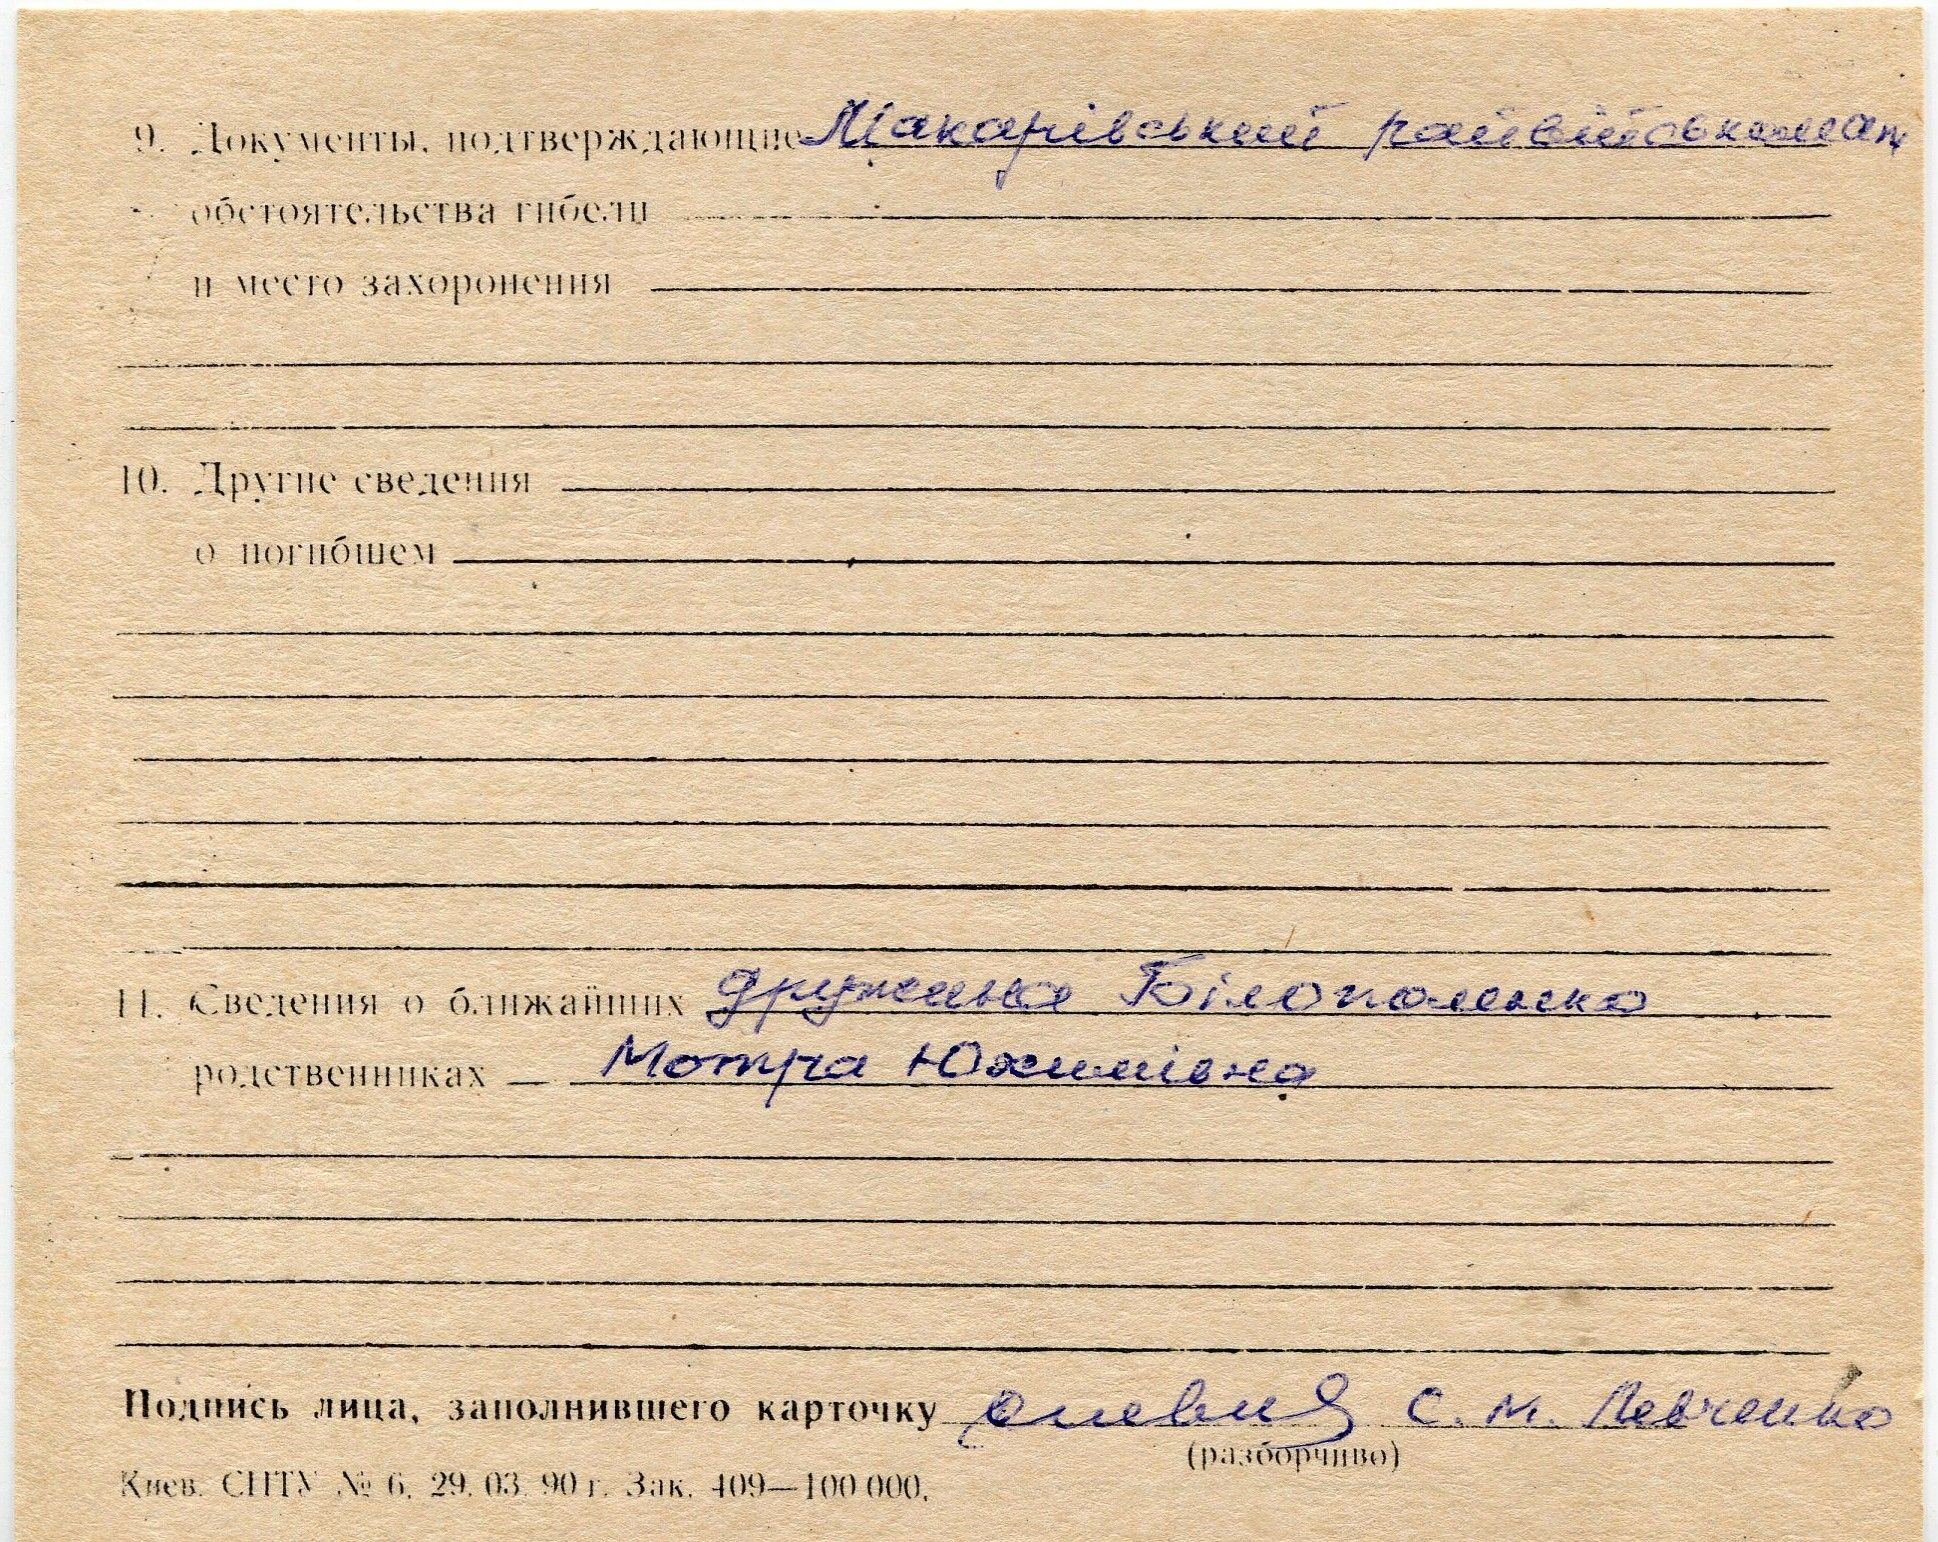 9. Документы, подтверждающие Макарівський райвійськкомат
обстоятельства гибели
и место захоронения
10. Другие сведения
о погибшем
11. Сведения о ближайших дружина Білополенко
родственниках Мотря Юхимівна
Подпись лица, заполнившего карточку С. М. Левченко
(разборчиво)
Киев. СПТУ № 6. 29. 03. 90 г. Зак. 409—100 000.